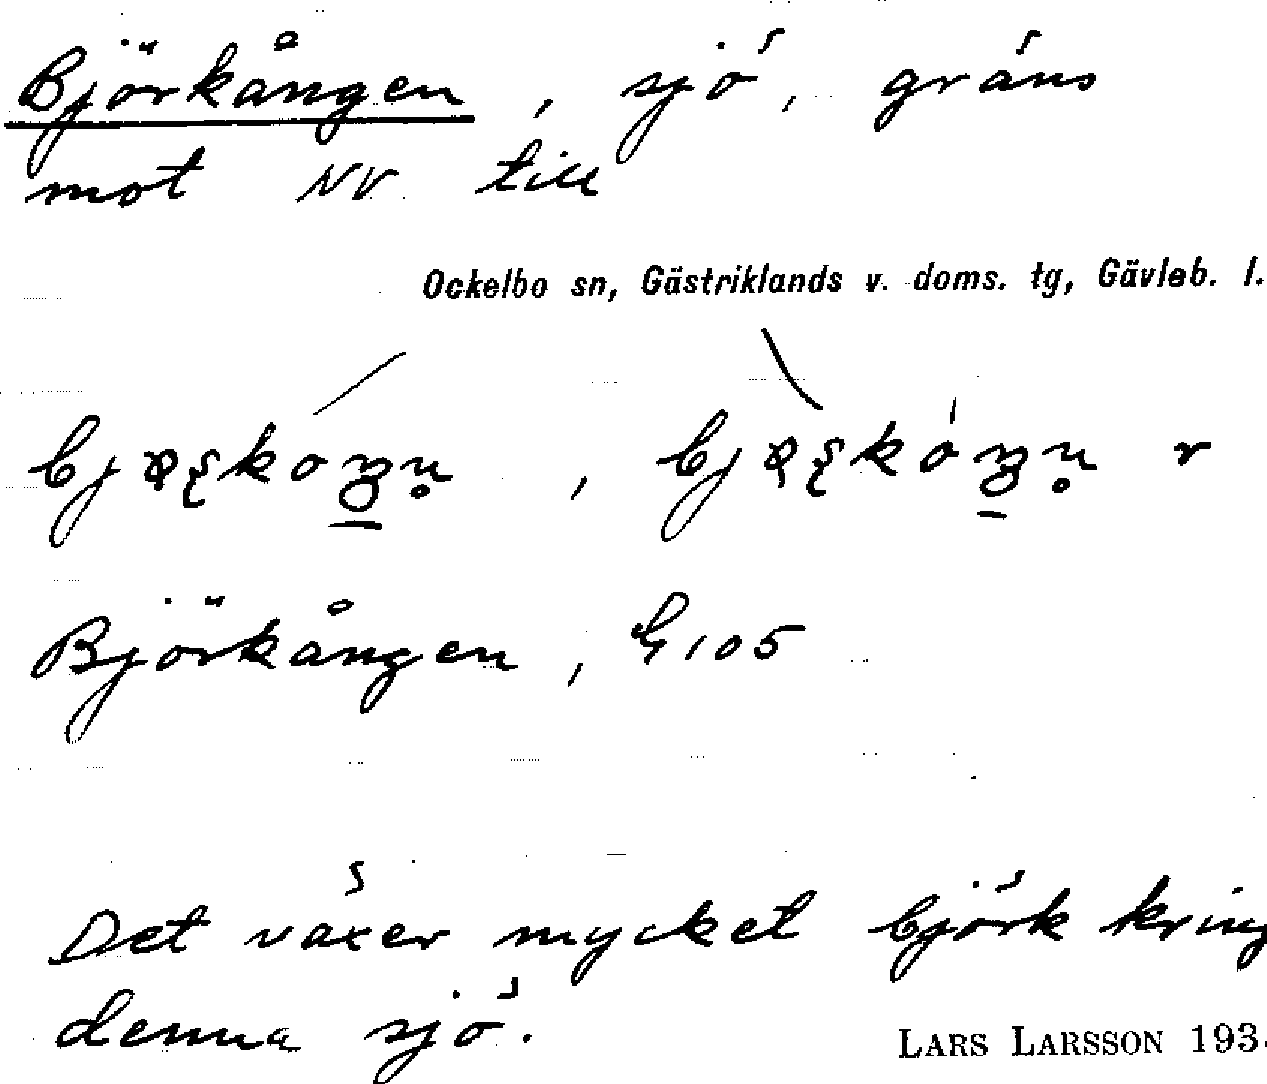 Björkången, sjö, gräns
mot NV till
Ockelbo sn, Gästriklands v. doms. tg, Gävleb. l.
Björkången, G 105
Det växer mycket björk kring
denna sjö.
LARS LARSSON 193